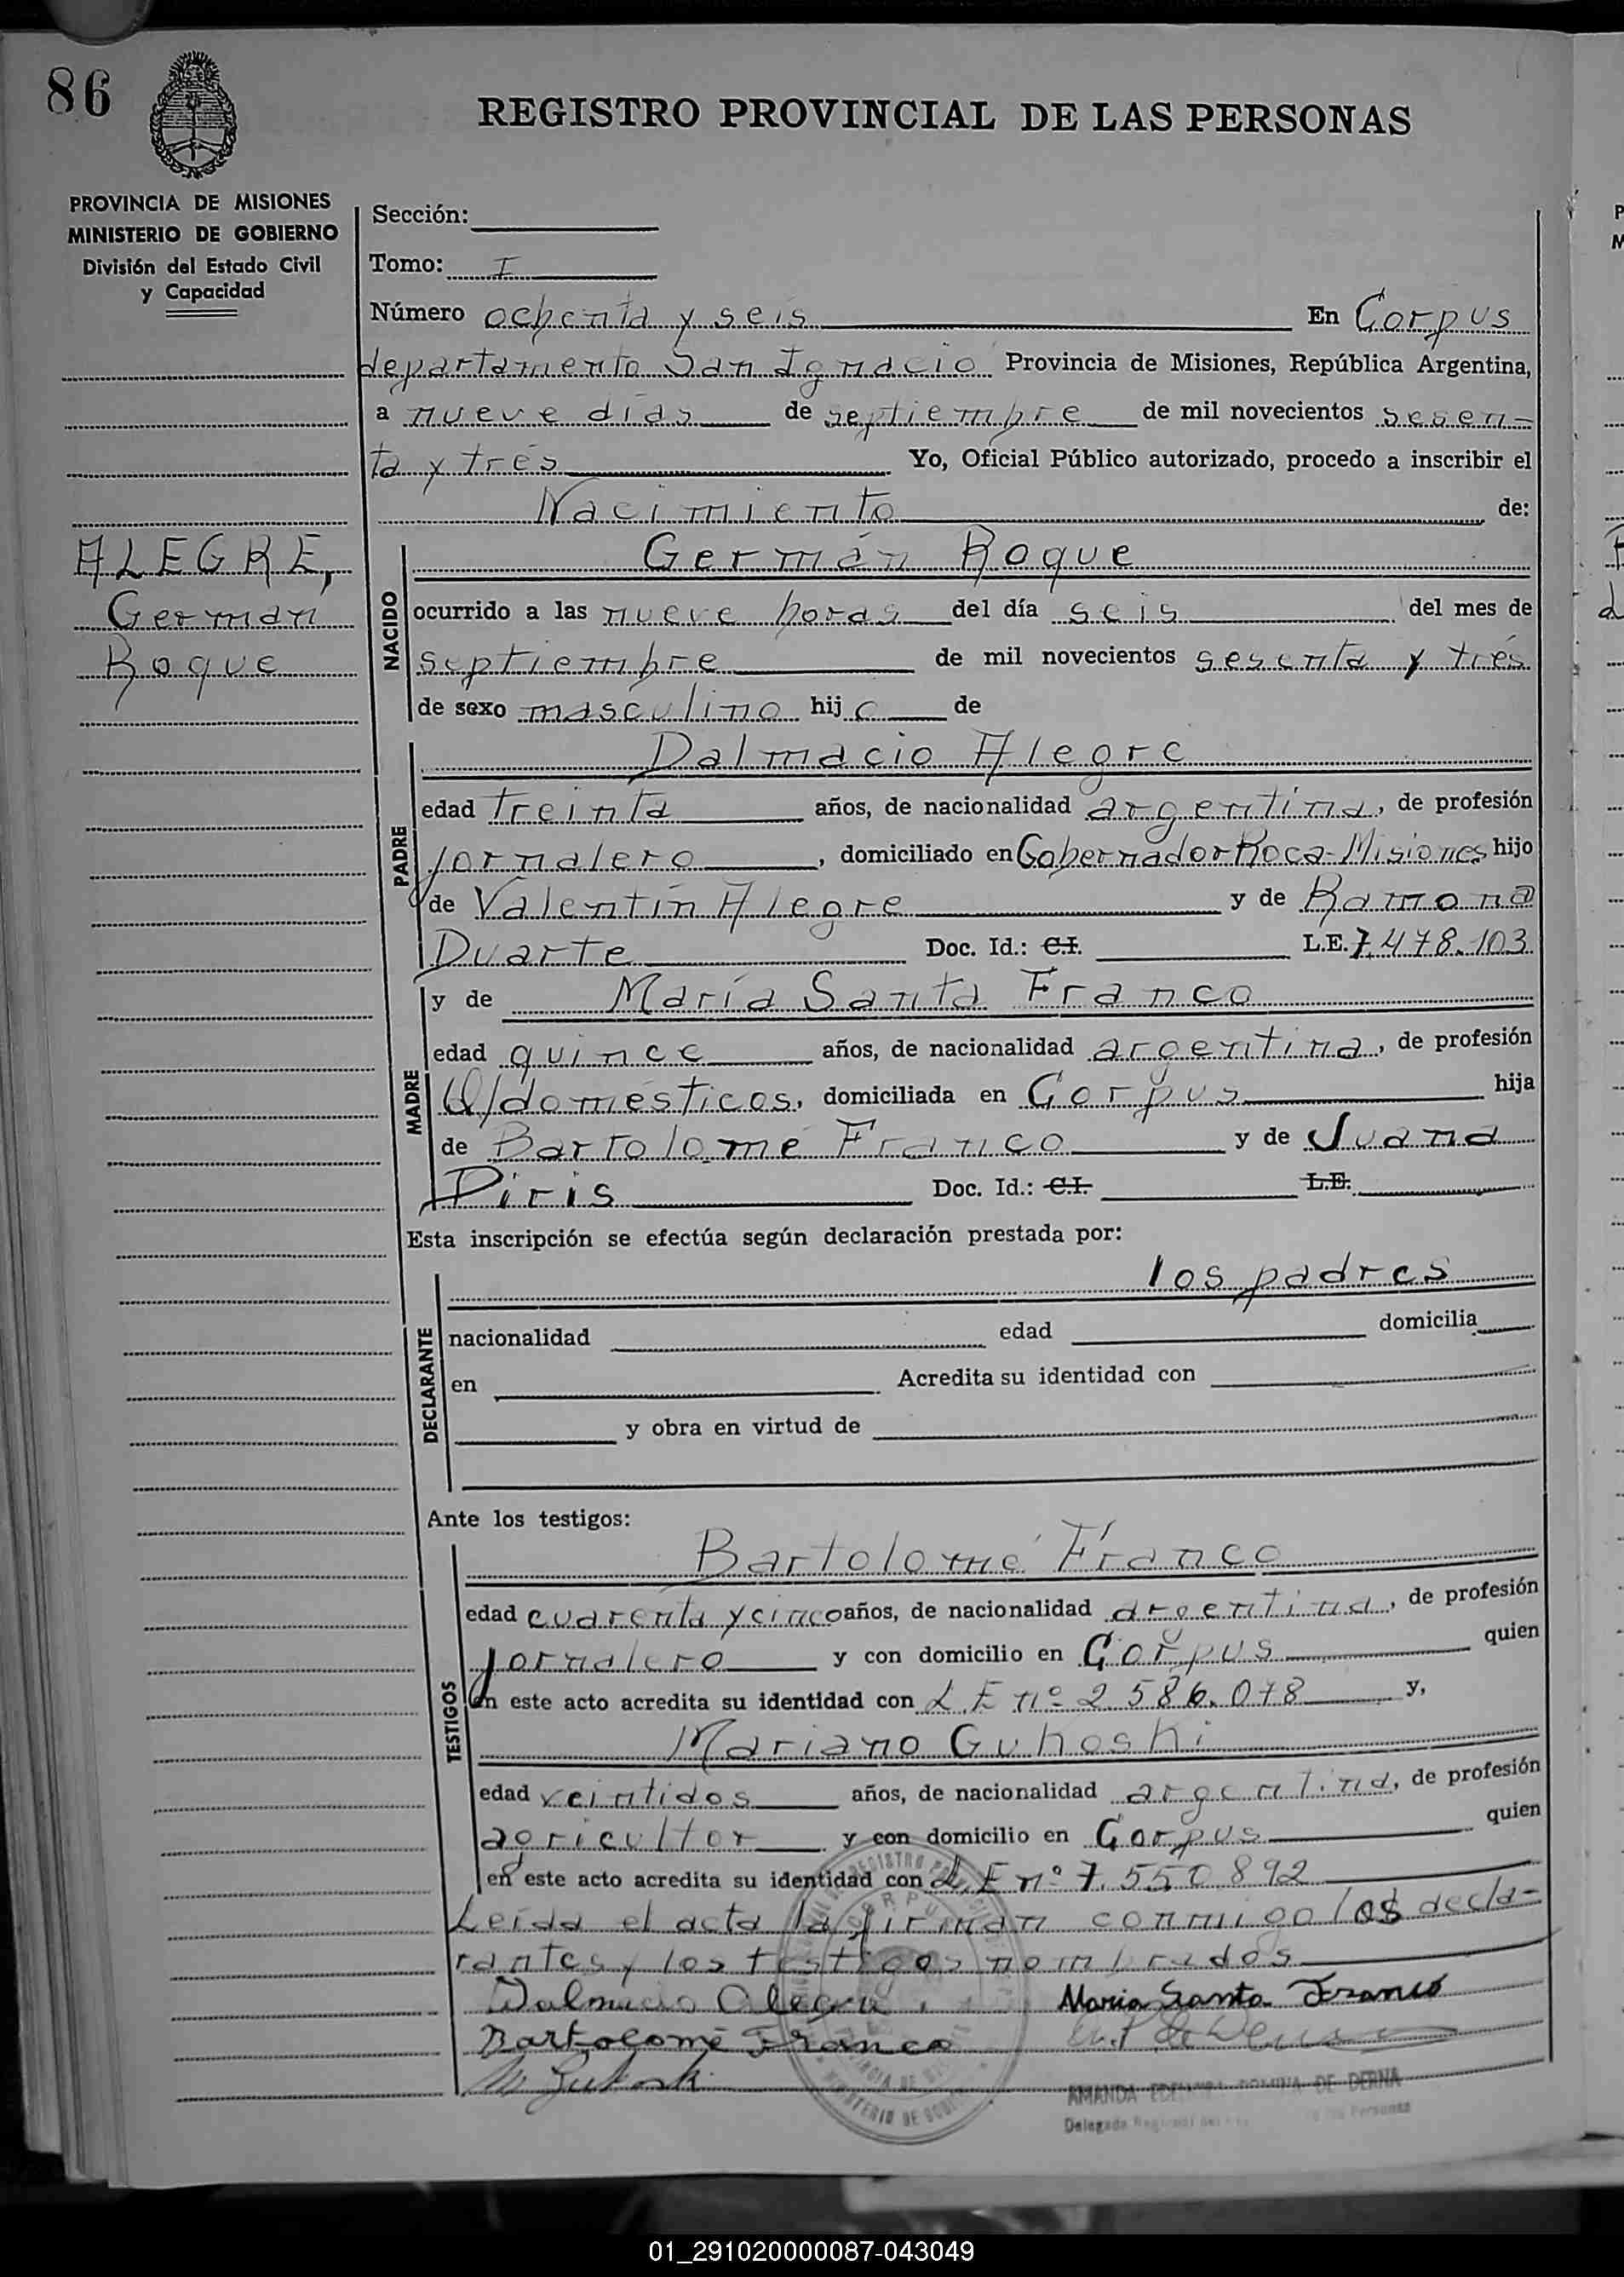 86
REGISTRO PROVINCIAL DE LAS PERSONAS
PROVINCIA DE MISIONES
MINISTERIO DE GOBIERNO
División del Estado Civil
y Capacidad
ALEGRE,
German
Roque
Sección:
Tomo: I
Número ochenta y seis En Corpus
departamento San Ignacio Provincia de Misiones, República Argentina,
a nueve días de septiembre de mil novecientos sesen-
ta y trés Yo, Oficial Público autorizado, procedo a inscribir el
Nacimiento de:
NACIDO
Germán Roque
ocurrido a las nueve horas del día seis del mes de
septiembre de mil novecientos sesenta y trés
de sexo masculino hijo de
PADRE
Dalmacio Alegre
edad treinta años, de nacionalidad argentina, de profesión
jornalero, domiciliado en Gobernador Roca-Misiones hijo
de Valentín Alegre y de Ramona
Duarte Doc. Id.: C.I. L.E. 7.478.103
MADRE
y de María Santa Franco
edad quince años, de nacionalidad argentina, de profesión
Q/domésticos, domiciliada en Corpus hija
de Bartolomé Franco y de Juana
Piris Doc. Id.: C.I. L.E.
Esta inscripción se efectúa según declaración prestada por:
DECLARANTE
los padres
nacionalidad edad domicilia
en Acredita su identidad con
y obra en virtud de
Ante los testigos:
TESTIGOS
Bartolomé Franco
edad cuarenta y cinco años, de nacionalidad argentina, de profesión
jornalero y con domicilio en Corpus quien
en este acto acredita su identidad con L.E nº 2.586.078 y,
Mariano Gukoski
edad veintidos años, de nacionalidad argentina, de profesión
agricultor y con domicilio en Corpus quien
en este acto acredita su identidad con L.E nº 7.550.892
Leída el acta la firman conmigo los decla-
rantes y los testigos nombrados
Dalmacio Alegre Maria Santa Franco
Bartolomé Franco
AMANDA DE DERNA
Delegada Regional
01_291020000087-043049